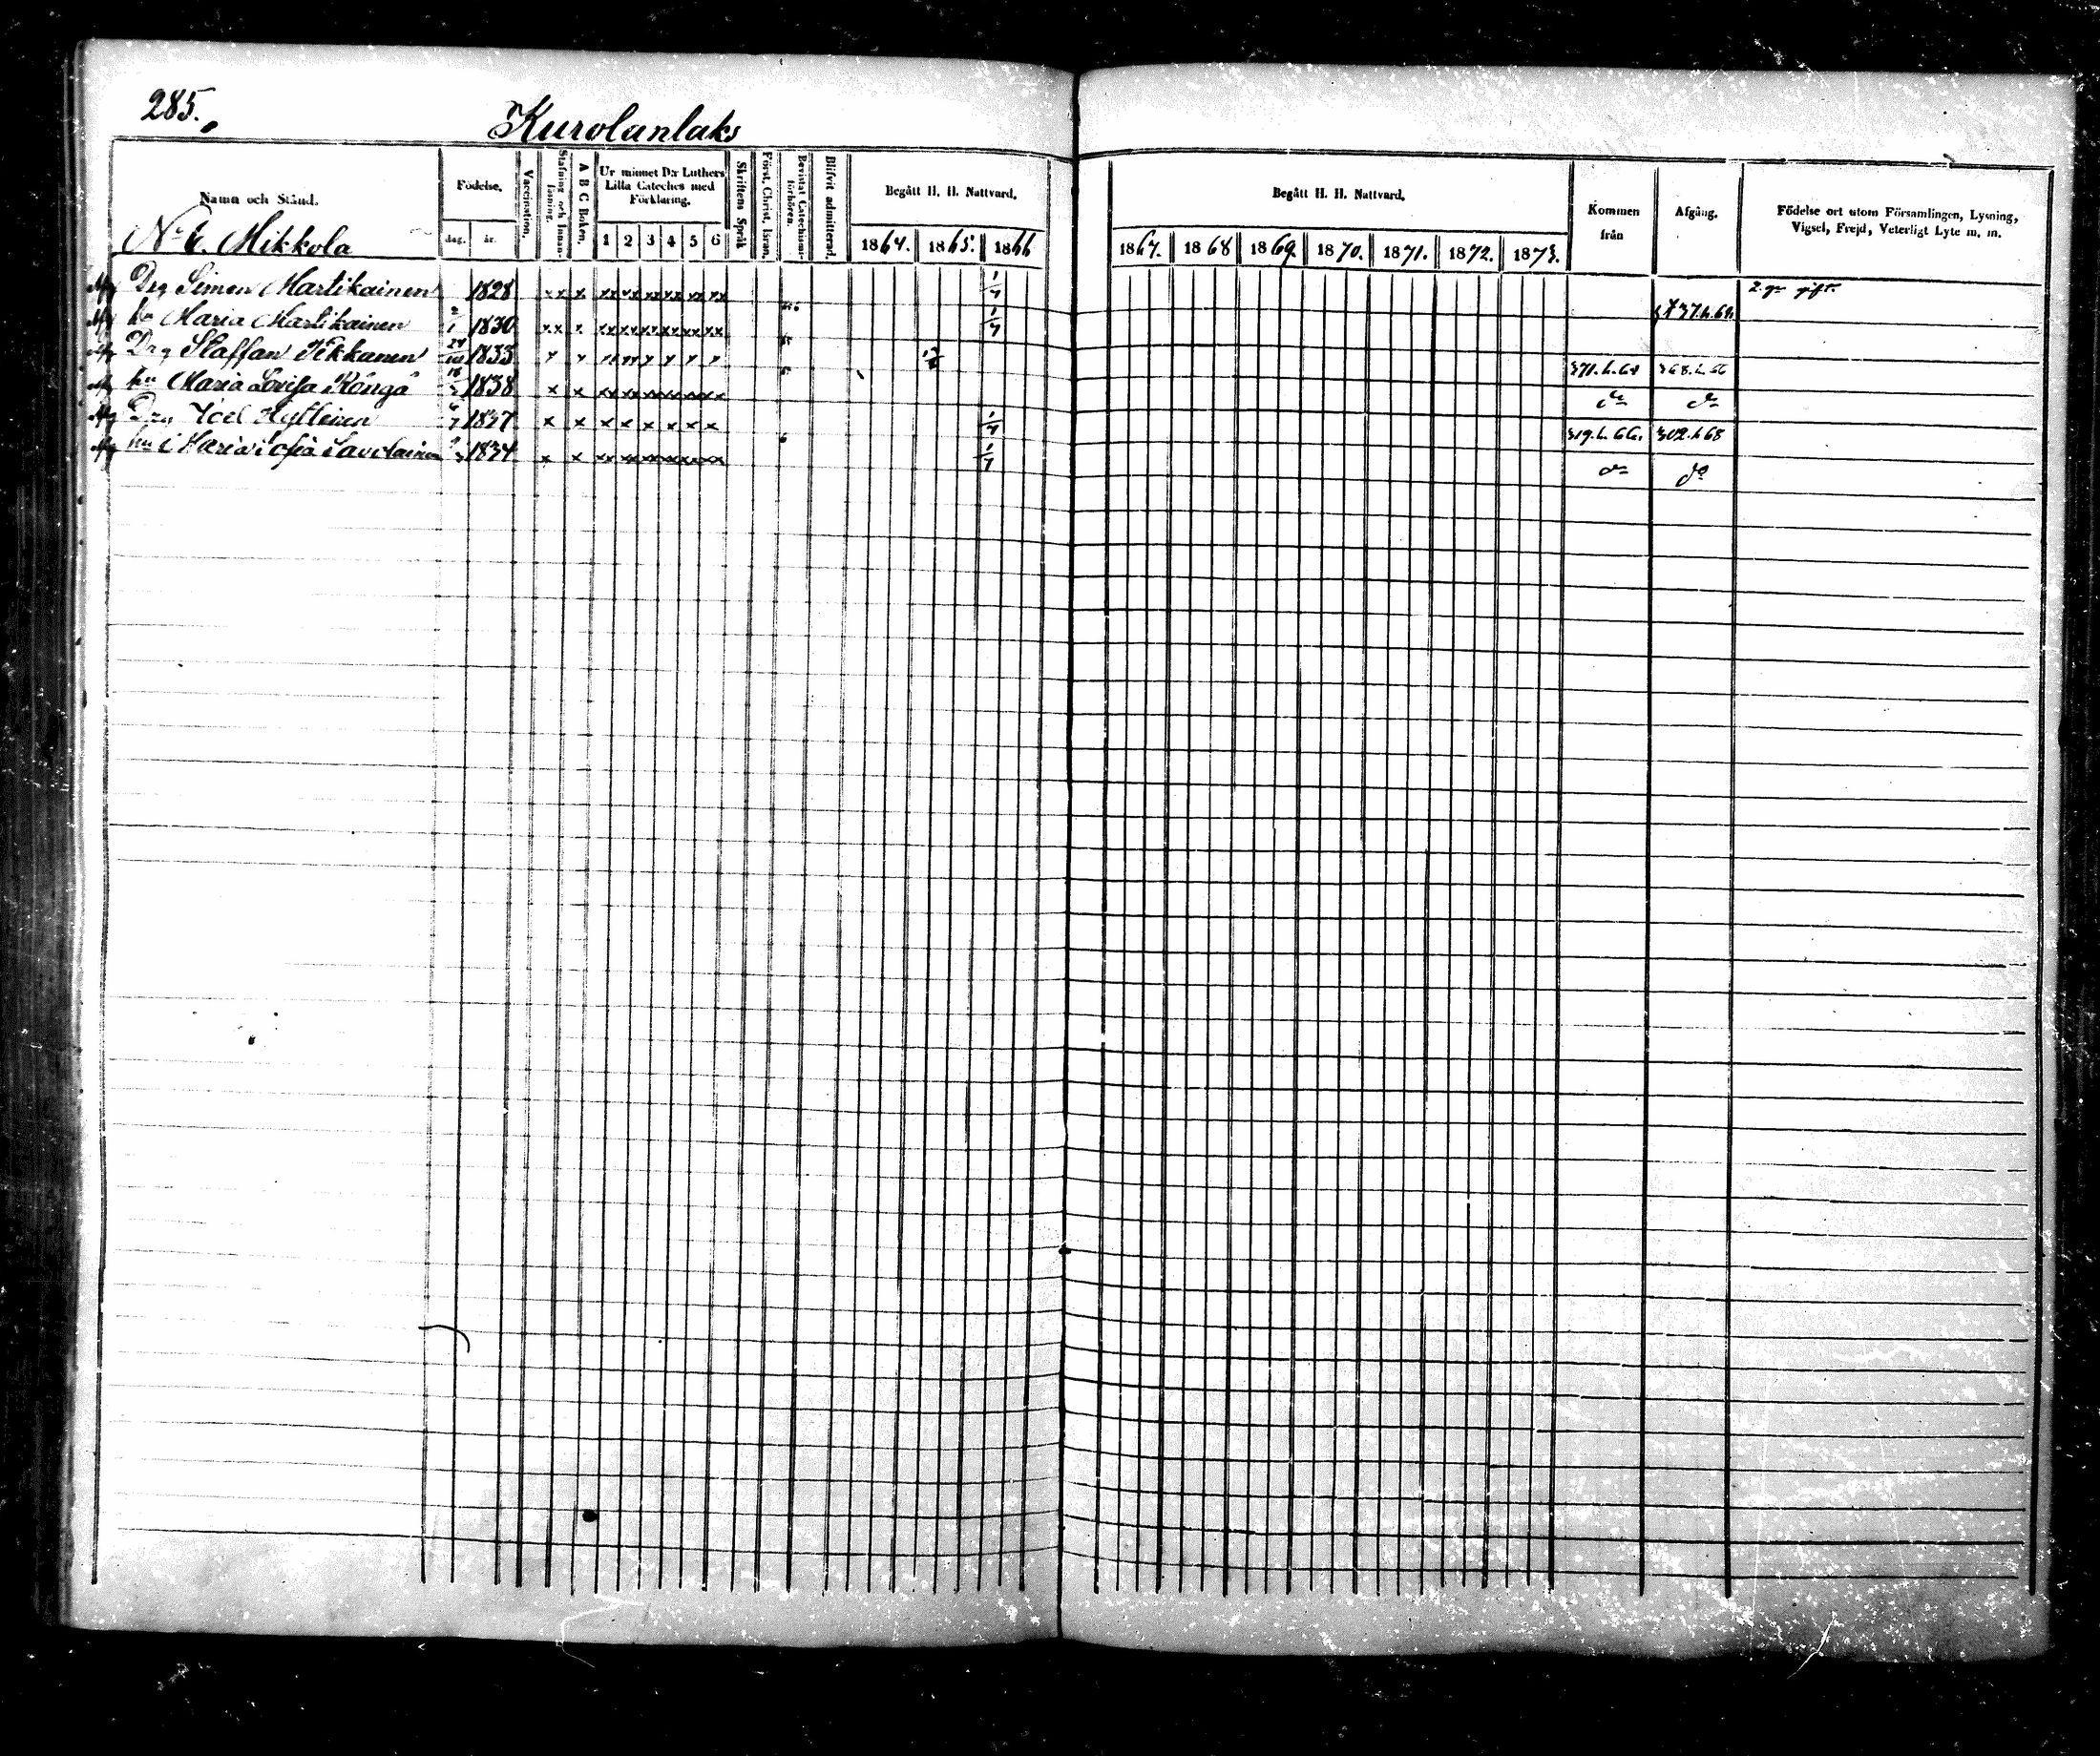 285.
Kurolanlaks
Namn och Stånd.
Födelse.
dag. år.
Vaccination.
Stafning och Innanläsning.
A B C Boken.
Ur minnet D:r Luthers Lilla Cateches med Förklaring.
1 2 3 4 5 6
Skriftens Språk
Först. Christ. Isran.
Bevistat Catechismiförhören.
Blifvit admitterad.
Begått H. H. Nattvard.
1864. 1865. 1866
Begått H. H. Nattvard.
1867. 1868 1869. 1870. 1871. 1872. 1873.
Kommen från
Afgång.
Födelse ort utom Församlingen, Lysning, Vigsel, Frejd, Veterligt Lyte m. m.
No 6. Mikkola
Drg Simon Martikainen 1828 x x x xx xx xx xx xx xx 1/7 2. gr gift.
hu Maria Martikainen 2/1 1830 x x x xx xx xx xx xx xx 1/7
Drg Staffan Tikkanen 1833 371.h.64 368.h.66
hu Maria Lovisa Rånga 1838 x x xx xx xx xx xx xx do do
Drg Joel 1837 x x x x x x x x 1/7 319.h.66. 302.h.68
hu Maria Sofia Savolainen 1834 x x xx xx xx xx xx xx 1/7 do do